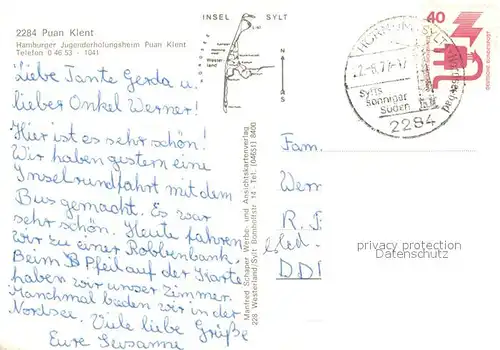 2284 Puan Klent
Hamburger Jugenderholungsheim Puan Klent
Telefon 0 46 53 - 1041
INSEL SYLT
Liebe Tante Gerda u.
lieber Onkel Werner!
Hier ist es sehr schön!
Wir haben gestern eine
Inselrundfahrt mit dem
Bus gemacht. Es war
sehr schön. Heute fahren
wir zu einer Robbenbank.
Beim Pfeil auf der Karte
haben wir unser Zimmer.
Manchmal baden wir in der
Nordsee. Viele liebe Grüße
Eure Susanne
Manfred Schaper Werbe- und Ansichtskartenverlag
228 Westerland/Sylt Bomhoffstr 14 - Tel. (04651) 8400
N
S
40
Sylts
sonniger
Süden
2284
Fam.
Wern
R. F
DD
privacy protection
Datenschutz